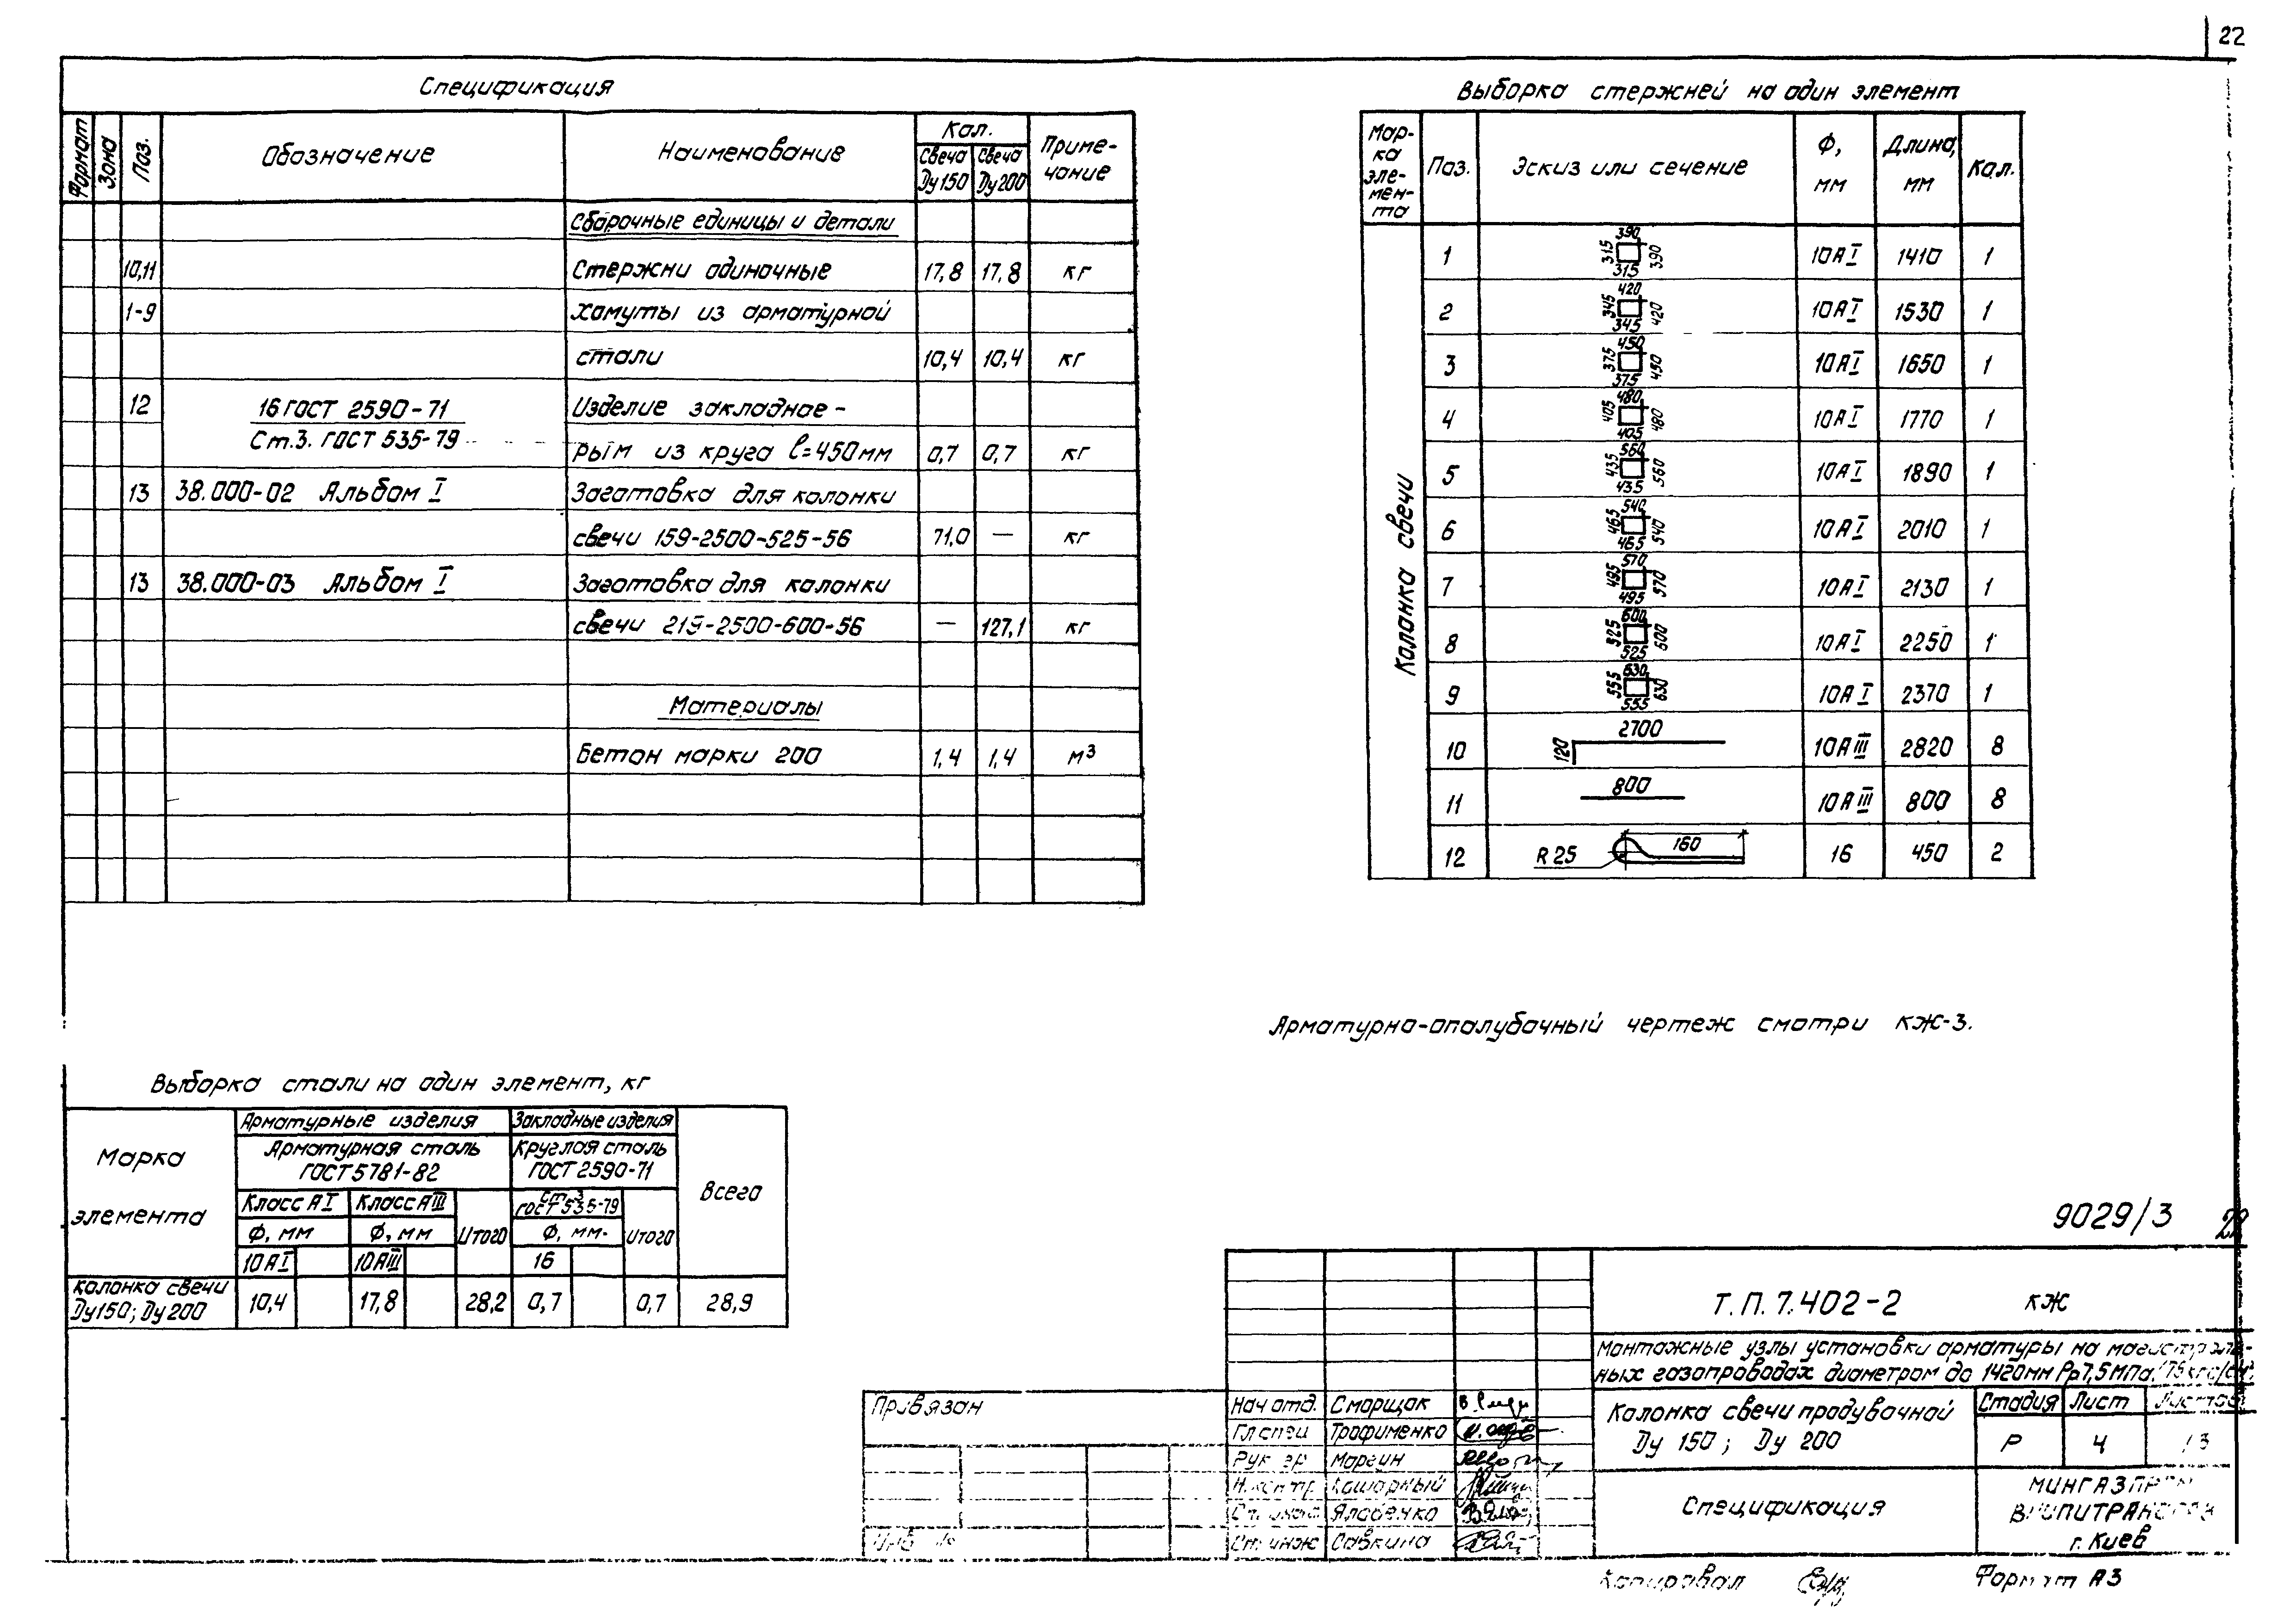 22
Спецификация
Формат Зона Поз. Обозначение Наименование Кол. Примечание
Свеча Ду150 Свеча Ду200
Сборочные единицы и детали
10,11 Стержни одиночные 17,8 17,8 кг
1-9 Хомуты из арматурной
стали 10,4 10,4 кг
12 16 ГОСТ 2590-71 Изделие закладное -
Ст.3. ГОСТ 535-79 рым из круга l=450мм 0,7 0,7 кг
13 38.000-02 Альбом I Заготовка для колонки
свечи 159-2500-525-56 71,0 — кг
13 38.000-03 Альбом I Заготовка для колонки
свечи 219-2500-600-56 — 127,1 кг
Материалы
Бетон марки 200 1,4 1,4 м3
Выборка стержней на один элемент
Мар-
ка
эле-
мен-
та
Поз. Эскиз или сечение Ф, мм Длина, мм Кол.
Колонка свечи
1 390 315 390 315 10АI 1410 1
2 420 345 420 345 10АI 1530 1
3 450 375 450 375 10АI 1650 1
4 480 405 480 405 10АI 1770 1
5 560 435 560 435 10АI 1890 1
6 540 465 540 465 10АI 2010 1
7 570 495 570 495 10АI 2130 1
8 600 525 600 525 10АI 2250 1
9 630 555 630 555 10АI 2370 1
10 120 2700 10АIII 2820 8
11 800 10АIII 800 8
12 R25 160 16 450 2
Арматурно-опалубочный чертеж смотри КЖ-3.
Выборка стали на один элемент, кг
Марка элемента Арматурные изделия Закладные изделия Всего
Арматурная сталь ГОСТ 5781-82 Круглая сталь ГОСТ 2590-71
Класс АI Класс АIII Итого Ст.3 ГОСТ 535-79 Итого
Ф, мм Ф, мм Ф, мм.
10АI 10АIII 16
Колонка свечи
Ду150; Ду200 10,4 17,8 28,2 0,7 0,7 28,9
9029/3 22
Т.П. 7.402-2 КЖ
Монтажные узлы установки арматуры на магистраль-
ных газопроводах диаметром до 1420мм Рр7,5МПа
Привязан
Нач отд. Сморщак
Гл спец Трофименко
Рук гр Моргин
Н.контр Кошарный
Ст. инж
Ст. инж Савкина
Колонка свечи продувочной
Ду 150; Ду 200
Стадия Лист Листов
Р 4 13
Спецификация
МИНГАЗПРОМ
ВНИПИТРАНСГАЗ
г. Киев
Инв №
Копировал
Формат А3